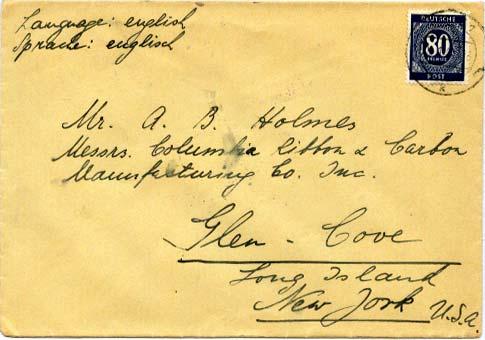 Language: english
Sprache: englisch
DEUTSCHE
80
PFENNIG
POST
Mr. A. B. Holmes
Messrs. Columbia Ribbon & Carbon
Manufacturing Co. Inc.
Glen - Cove
Long Island
New York U.S.A.